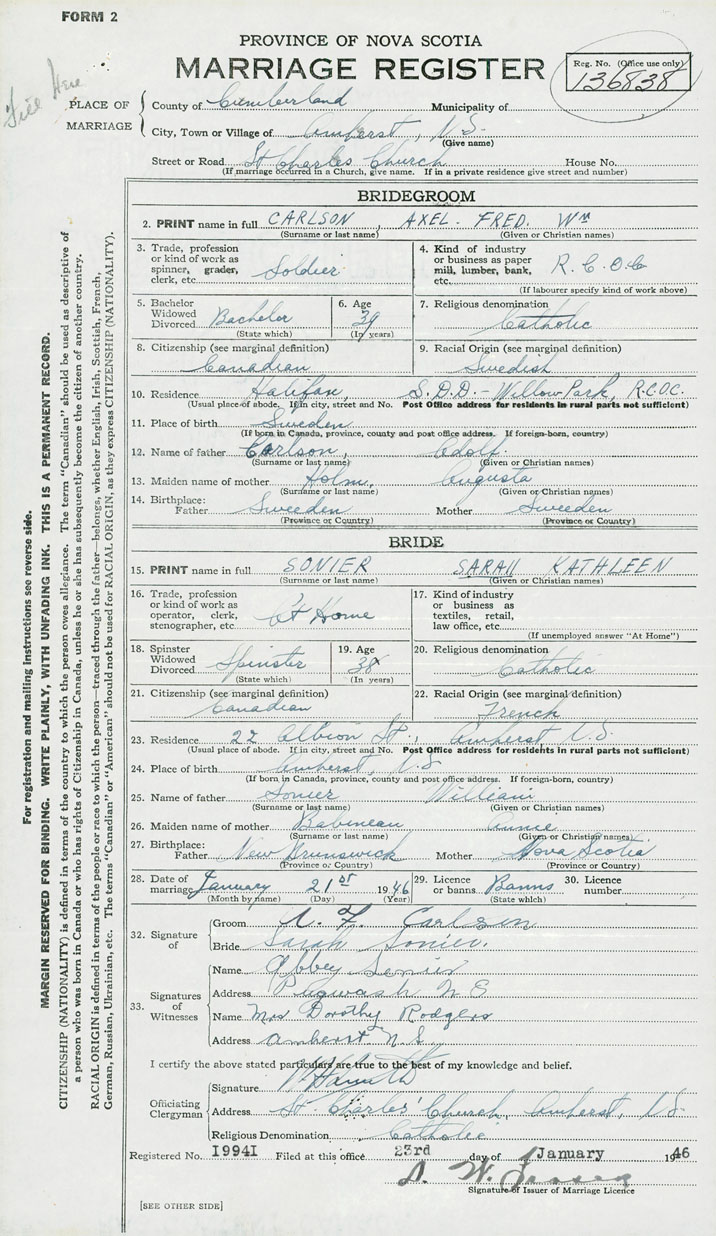 FORM 2
PROVINCE OF NOVA SCOTIA
MARRIAGE REGISTER
Reg. No. (Office use only)
136838
PLACE OF MARRIAGE
County of Cumberland Municipality of
City, Town or Village of Amherst, N.S.
(Give name)
Street or Road St Charles Church House No.
(If marriage occurred in a Church, give name. If in a private residence give street and number)
BRIDEGROOM
2. PRINT name in full CARLSON, AXEL. FRED. Wm
(Surname or last name) (Given or Christian names)
3. Trade, profession or kind of work as spinner, grader, clerk, etc. Soldier
4. Kind of industry or business as paper mill, lumber, bank, etc. R.C.O.C.
(If labourer specify kind of work above)
5. Bachelor Widowed Divorced Bachelor
(State which)
6. Age 39
(In years)
7. Religious denomination
Catholic
8. Citizenship (see marginal definition)
Canadian
9. Racial Origin (see marginal definition)
Swedish
10. Residence Halifax, S.D.D. - Willow Park, R.C.O.C.
(Usual place of abode. If in city, street and No. Post Office address for residents in rural parts not sufficient)
11. Place of birth Sweden
(If born in Canada, province, county and post office address. If foreign-born, country)
12. Name of father Carlson, Adolf
(Surname or last name) (Given or Christian names)
13. Maiden name of mother Holm, Augusta
(Surname or last name) (Given or Christian names)
14. Birthplace: Father Sweeden Mother Sweeden
(Province or Country) (Province or Country)
BRIDE
15. PRINT name in full SONIER SARAH KATHLEEN
(Surname or last name) (Given or Christian names)
16. Trade, profession or kind of work as operator, clerk, stenographer, etc. At Home
17. Kind of industry or business as textiles, retail, law office, etc.
(If unemployed answer "At Home")
18. Spinster Widowed Divorced Spinster
(State which)
19. Age 38
(In years)
20. Religious denomination
Catholic
21. Citizenship (see marginal definition)
Canadian
22. Racial Origin (see marginal definition)
French
23. Residence 22 Albion St., Amherst N.S
(Usual place of abode. If in city, street and No. Post Office address for residents in rural parts not sufficient)
24. Place of birth Amherst, N.S
(If born in Canada, province, county and post office address. If foreign-born, country)
25. Name of father Sonier William
(Surname or last name) (Given or Christian names)
26. Maiden name of mother Babineau Annie
(Surname or last name) (Given or Christian names)
27. Birthplace: Father New Brunswick Mother Nova Scotia
(Province or Country) (Province or Country)
28. Date of marriage January 21st 1946
(Month by name) (Day) (Year)
29. Licence or banns Banns
(State which)
30. Licence number
32. Signature of
Groom A. F. Carlson
Bride Sarah Sonier.
33. Signatures of Witnesses
Name Abbey Sonier
Address Pugwash N S
Name Mrs Dorothy Rodgers
Address Amherst N.S.
I certify the above stated particulars are true to the best of my knowledge and belief.
Officiating Clergyman
Signature
Address St. Charles' Church, Amherst, N.S.
Religious Denomination Catholic
Registered No. 19941 Filed at this office 23rd day of January 1946
Signature of Issuer of Marriage Licence
[SEE OTHER SIDE]
For registration and mailing instructions see reverse side.
MARGIN RESERVED FOR BINDING. WRITE PLAINLY, WITH UNFADING INK. THIS IS A PERMANENT RECORD.
CITIZENSHIP (NATIONALITY) is defined in terms of the country to which the person owes allegiance. The term "Canadian" should be used as descriptive of
a person who was born in Canada or who has rights of Citizenship in Canada, unless he or she has subsequently become the citizen of another country.
RACIAL ORIGIN is defined in terms of the people or race to which the person—traced through the father—belongs, whether English, Irish, Scottish, French,
German, Russian, Ukrainian, etc. The terms "Canadian" or "American" should not be used for RACIAL ORIGIN, as they express CITIZENSHIP (NATIONALITY).